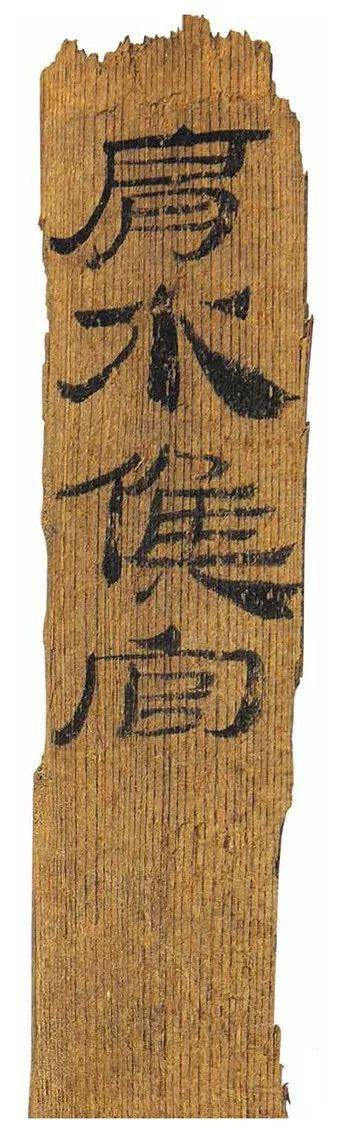 肩水候官